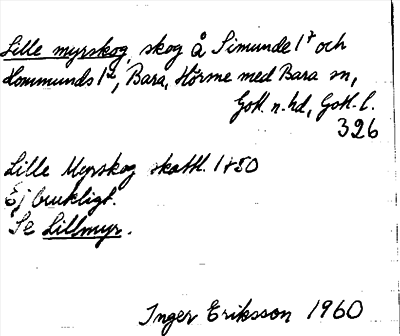 Lille myrskog, skog å Simunde 1⁴ och
Hommunds 1², Bara, Hörsne med Bara sn,
Gotl. n. hd, Gotl. l.
326
Lille Myrskog skattl. 1750
Ej brukligt.
Se Lillmyr.
Inger Eriksson 1960